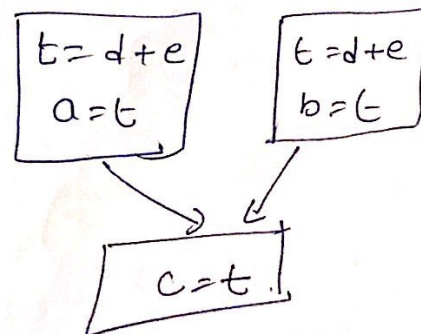 t = d + e
a = t
t = d + e
b = t
c = t